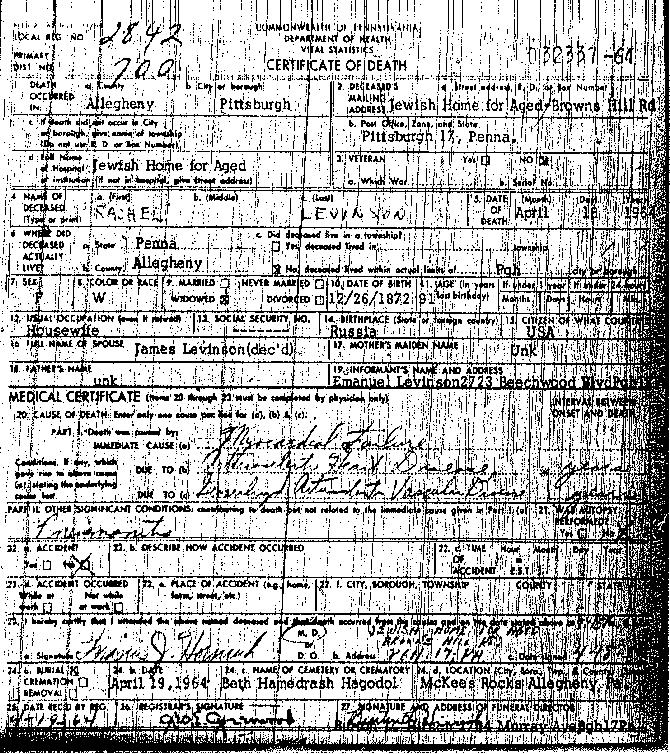 LOCAL REG. NO. 2842
COMMONWEALTH OF PENNSYLVANIA
DEPARTMENT OF HEALTH
VITAL STATISTICS
PRIMARY DIST. NO. 700
CERTIFICATE OF DEATH
032337-64
1. DEATH OCCURRED IN: a. County Allegheny b. City or borough Pittsburgh
2. DECEASED'S MAILING ADDRESS a. Street address, R. D. or Box Number Jewish Home for Aged-Browns Hill Rd
c. If death did not occur in City or borough, give name of township (Do not use R. D. or Box Number)
b. Post Office, Zone, and State Pittsburgh 17, Penna.
d. Full Name of Hospital Jewish Home for Aged
or institution (If not in hospital, give street address)
3. VETERAN Yes No
a. Which War b. Serial No.
4. NAME OF DECEASED (Type or print) a. (First) RACHEL b. (Middle) c. (Last) LEVINSON
5. DATE OF DEATH (Month) (Day) April 18
6. WHERE DID DECEASED ACTUALLY LIVE? a. State Penna b. County Allegheny
c. Did deceased live in a township?
Yes, deceased lived in township
No, deceased lived within actual limits of Pgh city or borough
7. SEX F 8. COLOR OR RACE W 9. MARRIED NEVER MARRIED WIDOWED DIVORCED
10. DATE OF BIRTH 12/26/1872 11. AGE (in years last birthday) 91 If under 1 year Months Days If under 24 hrs. Hours Min.
12. USUAL OCCUPATION (even if retired) Housewife
13. SOCIAL SECURITY NO. -------
14. BIRTHPLACE (State or foreign country) Russia
15. CITIZEN OF WHAT COUNTRY USA
16. FULL NAME OF SPOUSE James Levinson(dec'd)
17. MOTHER'S MAIDEN NAME Unk
18. FATHER'S NAME unk
19. INFORMANT'S NAME AND ADDRESS Emanuel Levinson2723 Beechwood Blvd
MEDICAL CERTIFICATE (Items 20 through 23 must be completed by physician only)
INTERVAL BETWEEN ONSET AND DEATH
20. CAUSE OF DEATH: Enter only one cause per line for (a), (b) & (c).
PART I. Death was caused by:
IMMEDIATE CAUSE (a) Myocardial Failure
Conditions, if any, which gave rise to above cause (a) stating the underlying cause last.
DUE TO (b) Heart Disease years
DUE TO (c) Vascular Disease years
PART II. OTHER SIGNIFICANT CONDITIONS: contributing to death but not related to the immediate cause given in Part I (a)
21. WAS AUTOPSY PERFORMED? Yes No
22. a. ACCIDENT Yes No
22. b. DESCRIBE HOW ACCIDENT OCCURRED
22. c. TIME OF ACCIDENT Hour Month Day Year E.S.T.
22. d. ACCIDENT OCCURRED While at work Not while at work
22. e. PLACE OF ACCIDENT (e.g., home, farm, street, etc.)
22. f. CITY, BOROUGH, TOWNSHIP COUNTY STATE
23. I hereby certify that I attended the above named deceased and that death occurred from the causes and on the date stated above
a. Signature M. D. or D. O. b. Address JEWISH HOME FOR AGED
BROWNS HILL RD
PGH 17, PA c. Date signed
24. a. BURIAL CREMATION REMOVAL
24. b. Date April 19, 1964
24. c. NAME OF CEMETERY OR CREMATORY Beth Hamedrash Hagodol
24. d. LOCATION McKees Rocks Allegheny Pa
25. DATE REC'D BY REG. 4-19-64
26. REGISTRAR'S SIGNATURE
27. SIGNATURE AND ADDRESS OF FUNERAL DIRECTOR